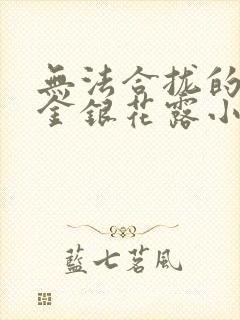 無法合拢的
金銀花露小
藍七茗風